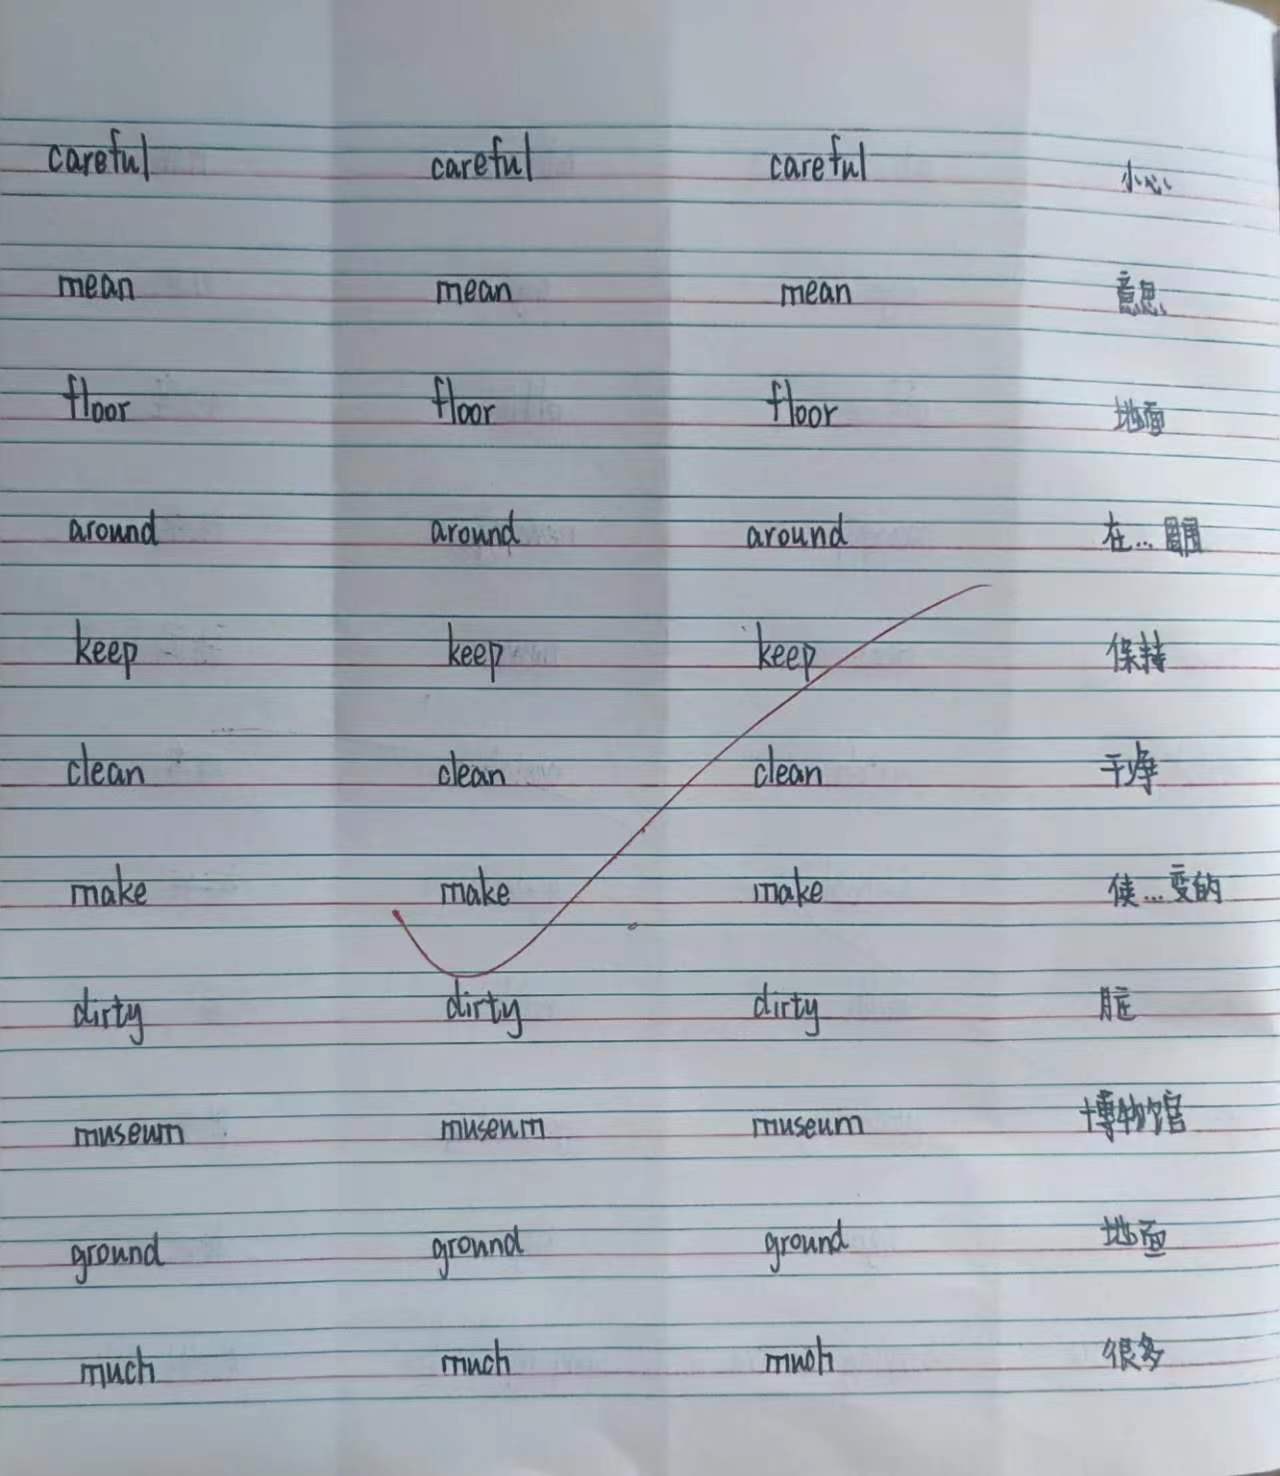 careful careful careful 小心
mean mean mean 意思
floor floor floor 地面
around around around 在...周围
keep keep keep 保持
clean clean clean 干净
make make make 使...变的
dirty dirty dirty 脏
museum museum museum 博物馆
ground ground ground 地面
much much much 很多